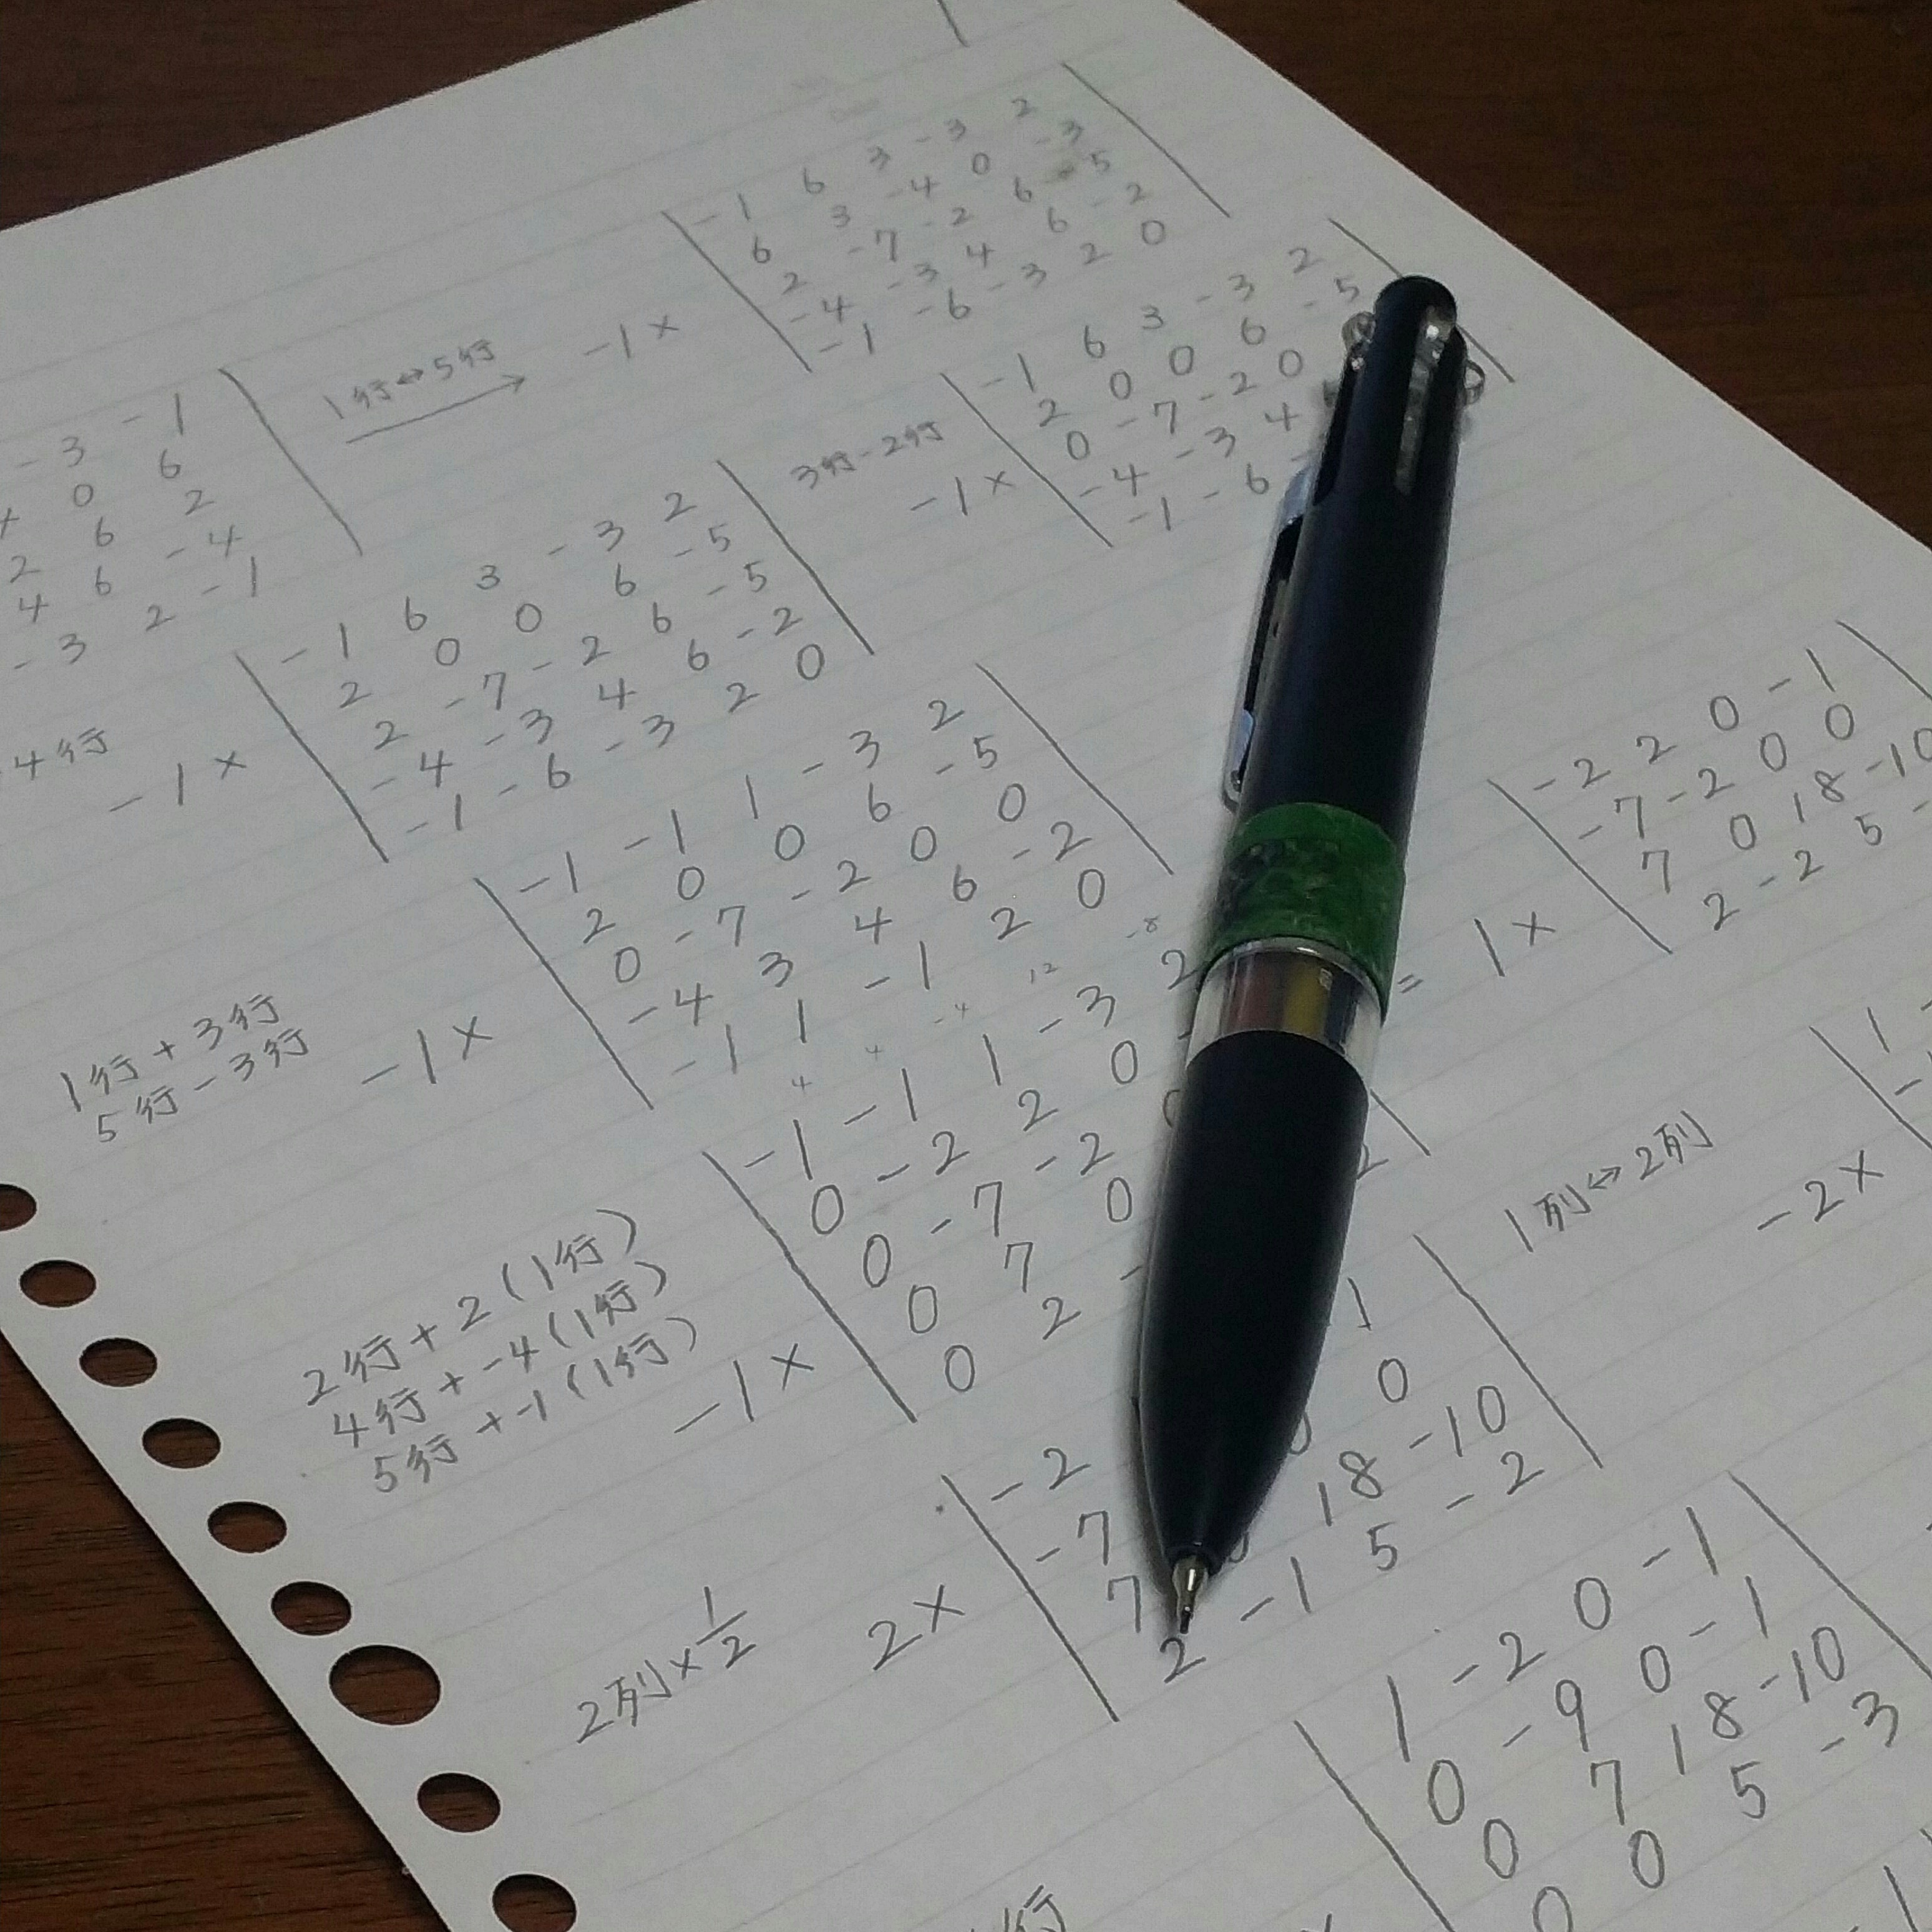 - 3 - 1
0 6
2
6
2 6 - 4
4
- 3 2 - 1
1行↔5行
-1 ×
-1 6 3 -3 2
6 3 -4 0 -3
2 -7 -2 6 5
-4 -3 4 6 -2
-1 -6 -3 2 0
4行
-1 ×
-1 6 3 -3 2
2 0 0 6 -5
2 -7 -2 6 -5
-4 -3 4 6 -2
-1 -6 -3 2 0
3行-2行
-1 ×
-1 6 3 -3 2
2 0 0 6 -5
0 -7 -2 0
-4 -3 4
-1 -6
1行+3行
5行-3行
-1 ×
-1 -1 1 -3 2
2 0 0 6 -5
0 -7 -2 0 0
-4 3 4 6 -2
-1 1 -1 2 0
4 4 -4 12 -8
2行+2(1行)
4行+-4(1行)
5行+-1(1行)
-1 ×
-1 -1 1 -3 2
0 -2 2 0
0 -7 -2
0 7 0
0 2
= 1 ×
-2 2 0 -1
-7 -2 0 0
7 0 18 -10
2 -2 5
2列×1/2
2 ×
-2 1
-7 0
7 18 -10
2 -1 5 -2
1列↔2列
-2 ×
1
1 -2 0 -1
0 -9 0 -1
0 7 18 -10
0 0 5 -3
行